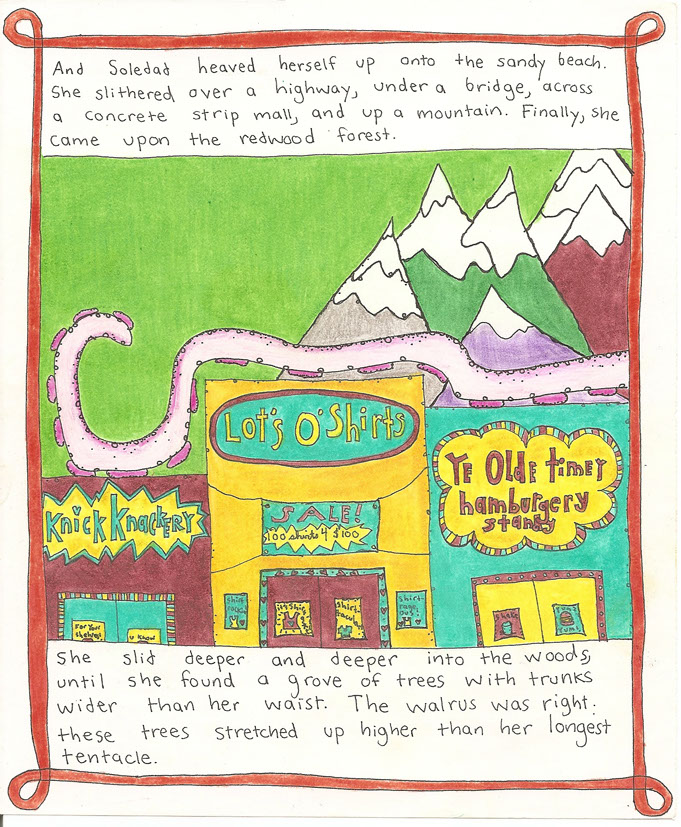 And Soledad heaved herself up onto the sandy beach.
She slithered over a highway, under a bridge, across
a concrete strip mall, and up a mountain. Finally, she
came upon the redwood forest.
Lot's O' Shirts
Ye Olde timey
hamburgery
stand
Knick Knackery
SALE!
100 shirts 4 $100
shirt
rocks
shirt
tacular
shake
yum!
yum!
For Your
U Know
She slid deeper and deeper into the woods,
until she found a grove of trees with trunks
wider than her waist. The walrus was right:
these trees stretched up higher than her longest
tentacle.